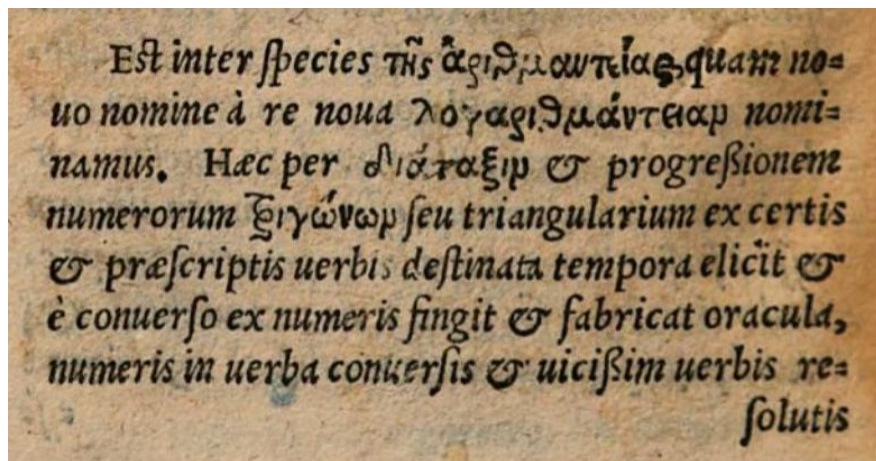 Est inter species τῆς ἀριθμαντείας, quam no=
uo nomine à re noua λογαριθμάντειαν nomi=
namus. Hæc per διάταξιν & progreßionem
numerorum τριγώνων seu triangularium ex certis
& præscriptis uerbis destinata tempora elicit &
è conuerso ex numeris fingit & fabricat oracula,
numeris in uerba conuersis & uicißim uerbis re=
solutis